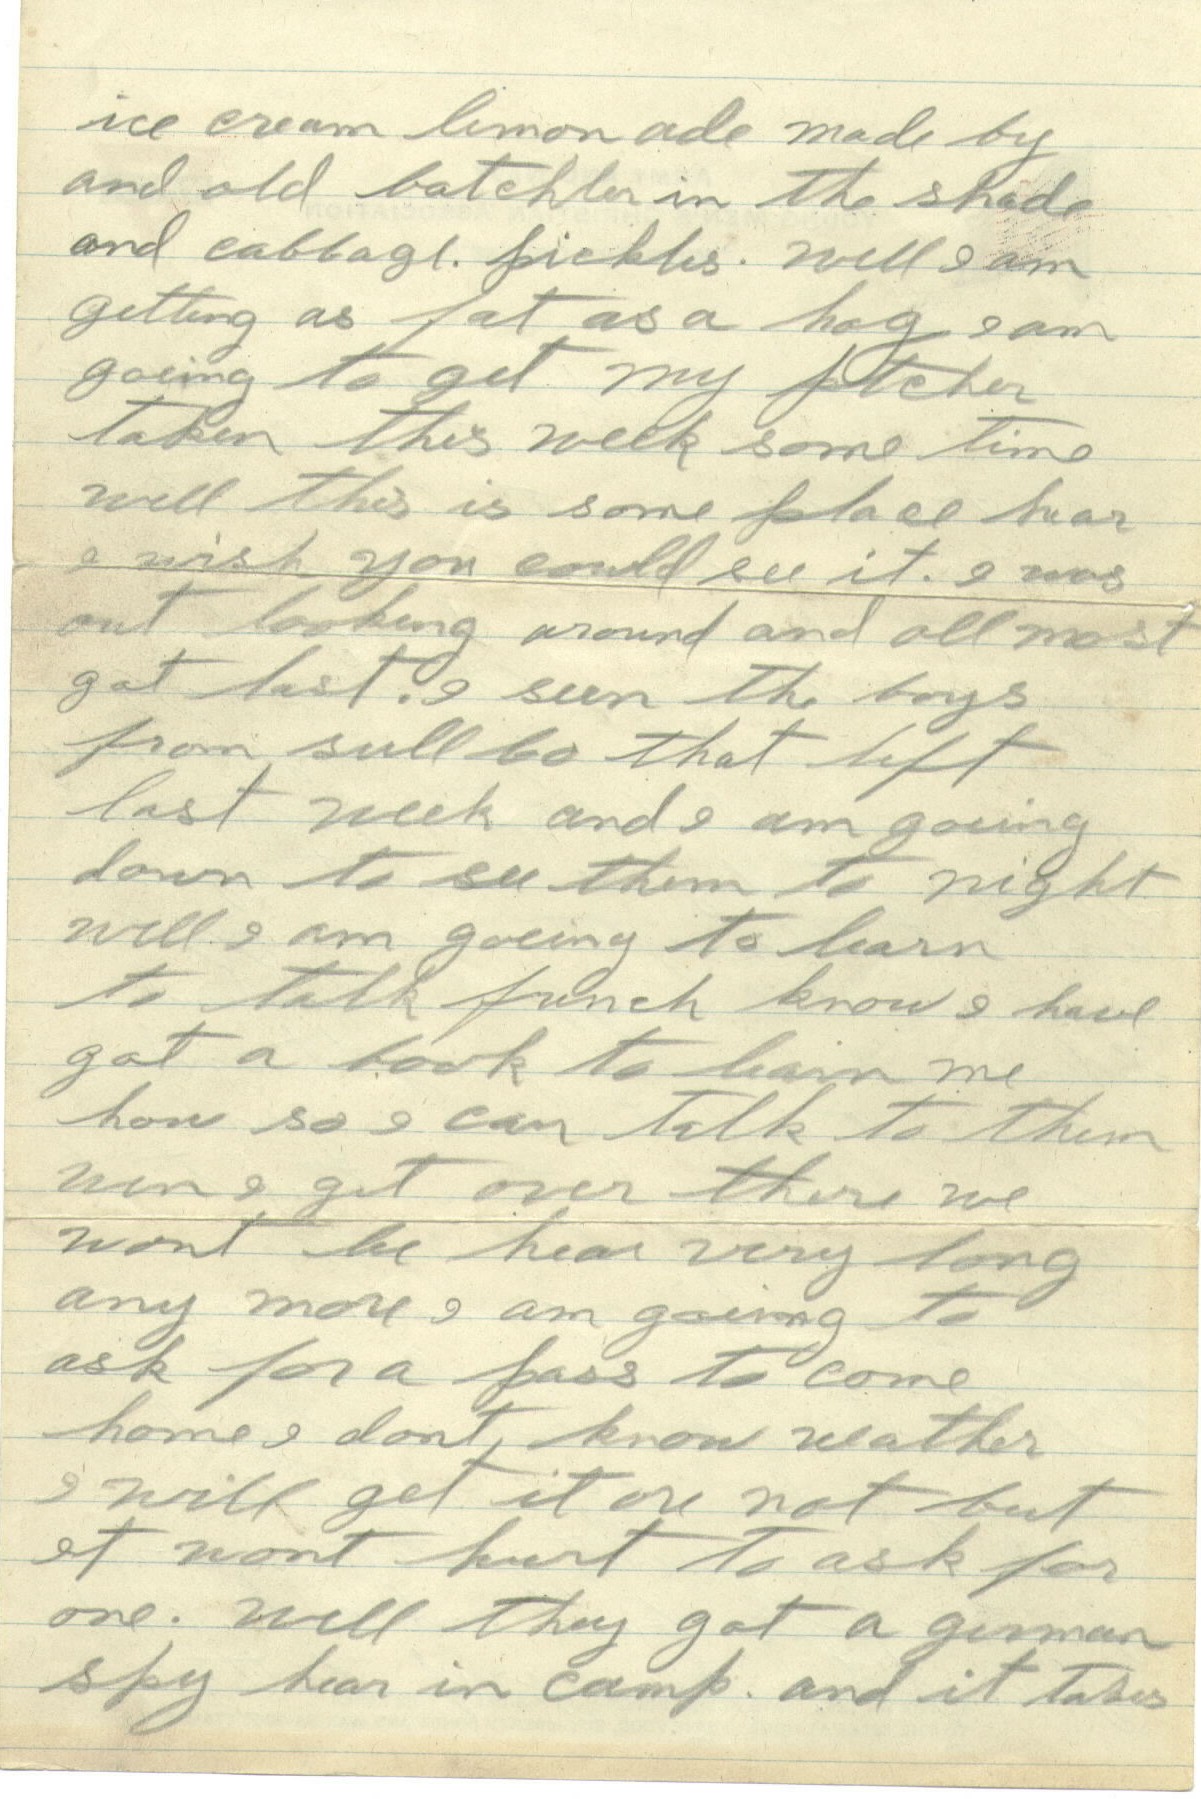 ice cream limon ade made by
and old batchler in the shade
and cabbage. pickles. well I am
getting as fat as a hog I am
going to get my ptcher
taken this week some time
well this is some place hear
I wish you could see it. I was
out looking around and all most
got lost. I seen the boys
from sull co that left
last week and I am going
down to see them to night
well I am going to learn
to talk french know I have
got a book to learn me
how so I can talk to them
wen I get over there we
wont be hear very long
any more I am going to
ask for a pass to come
home I dont, know weather
I will get it ore not but
it wont hurt to ask for
one. well they got a german
spy hear in camp. and it takes